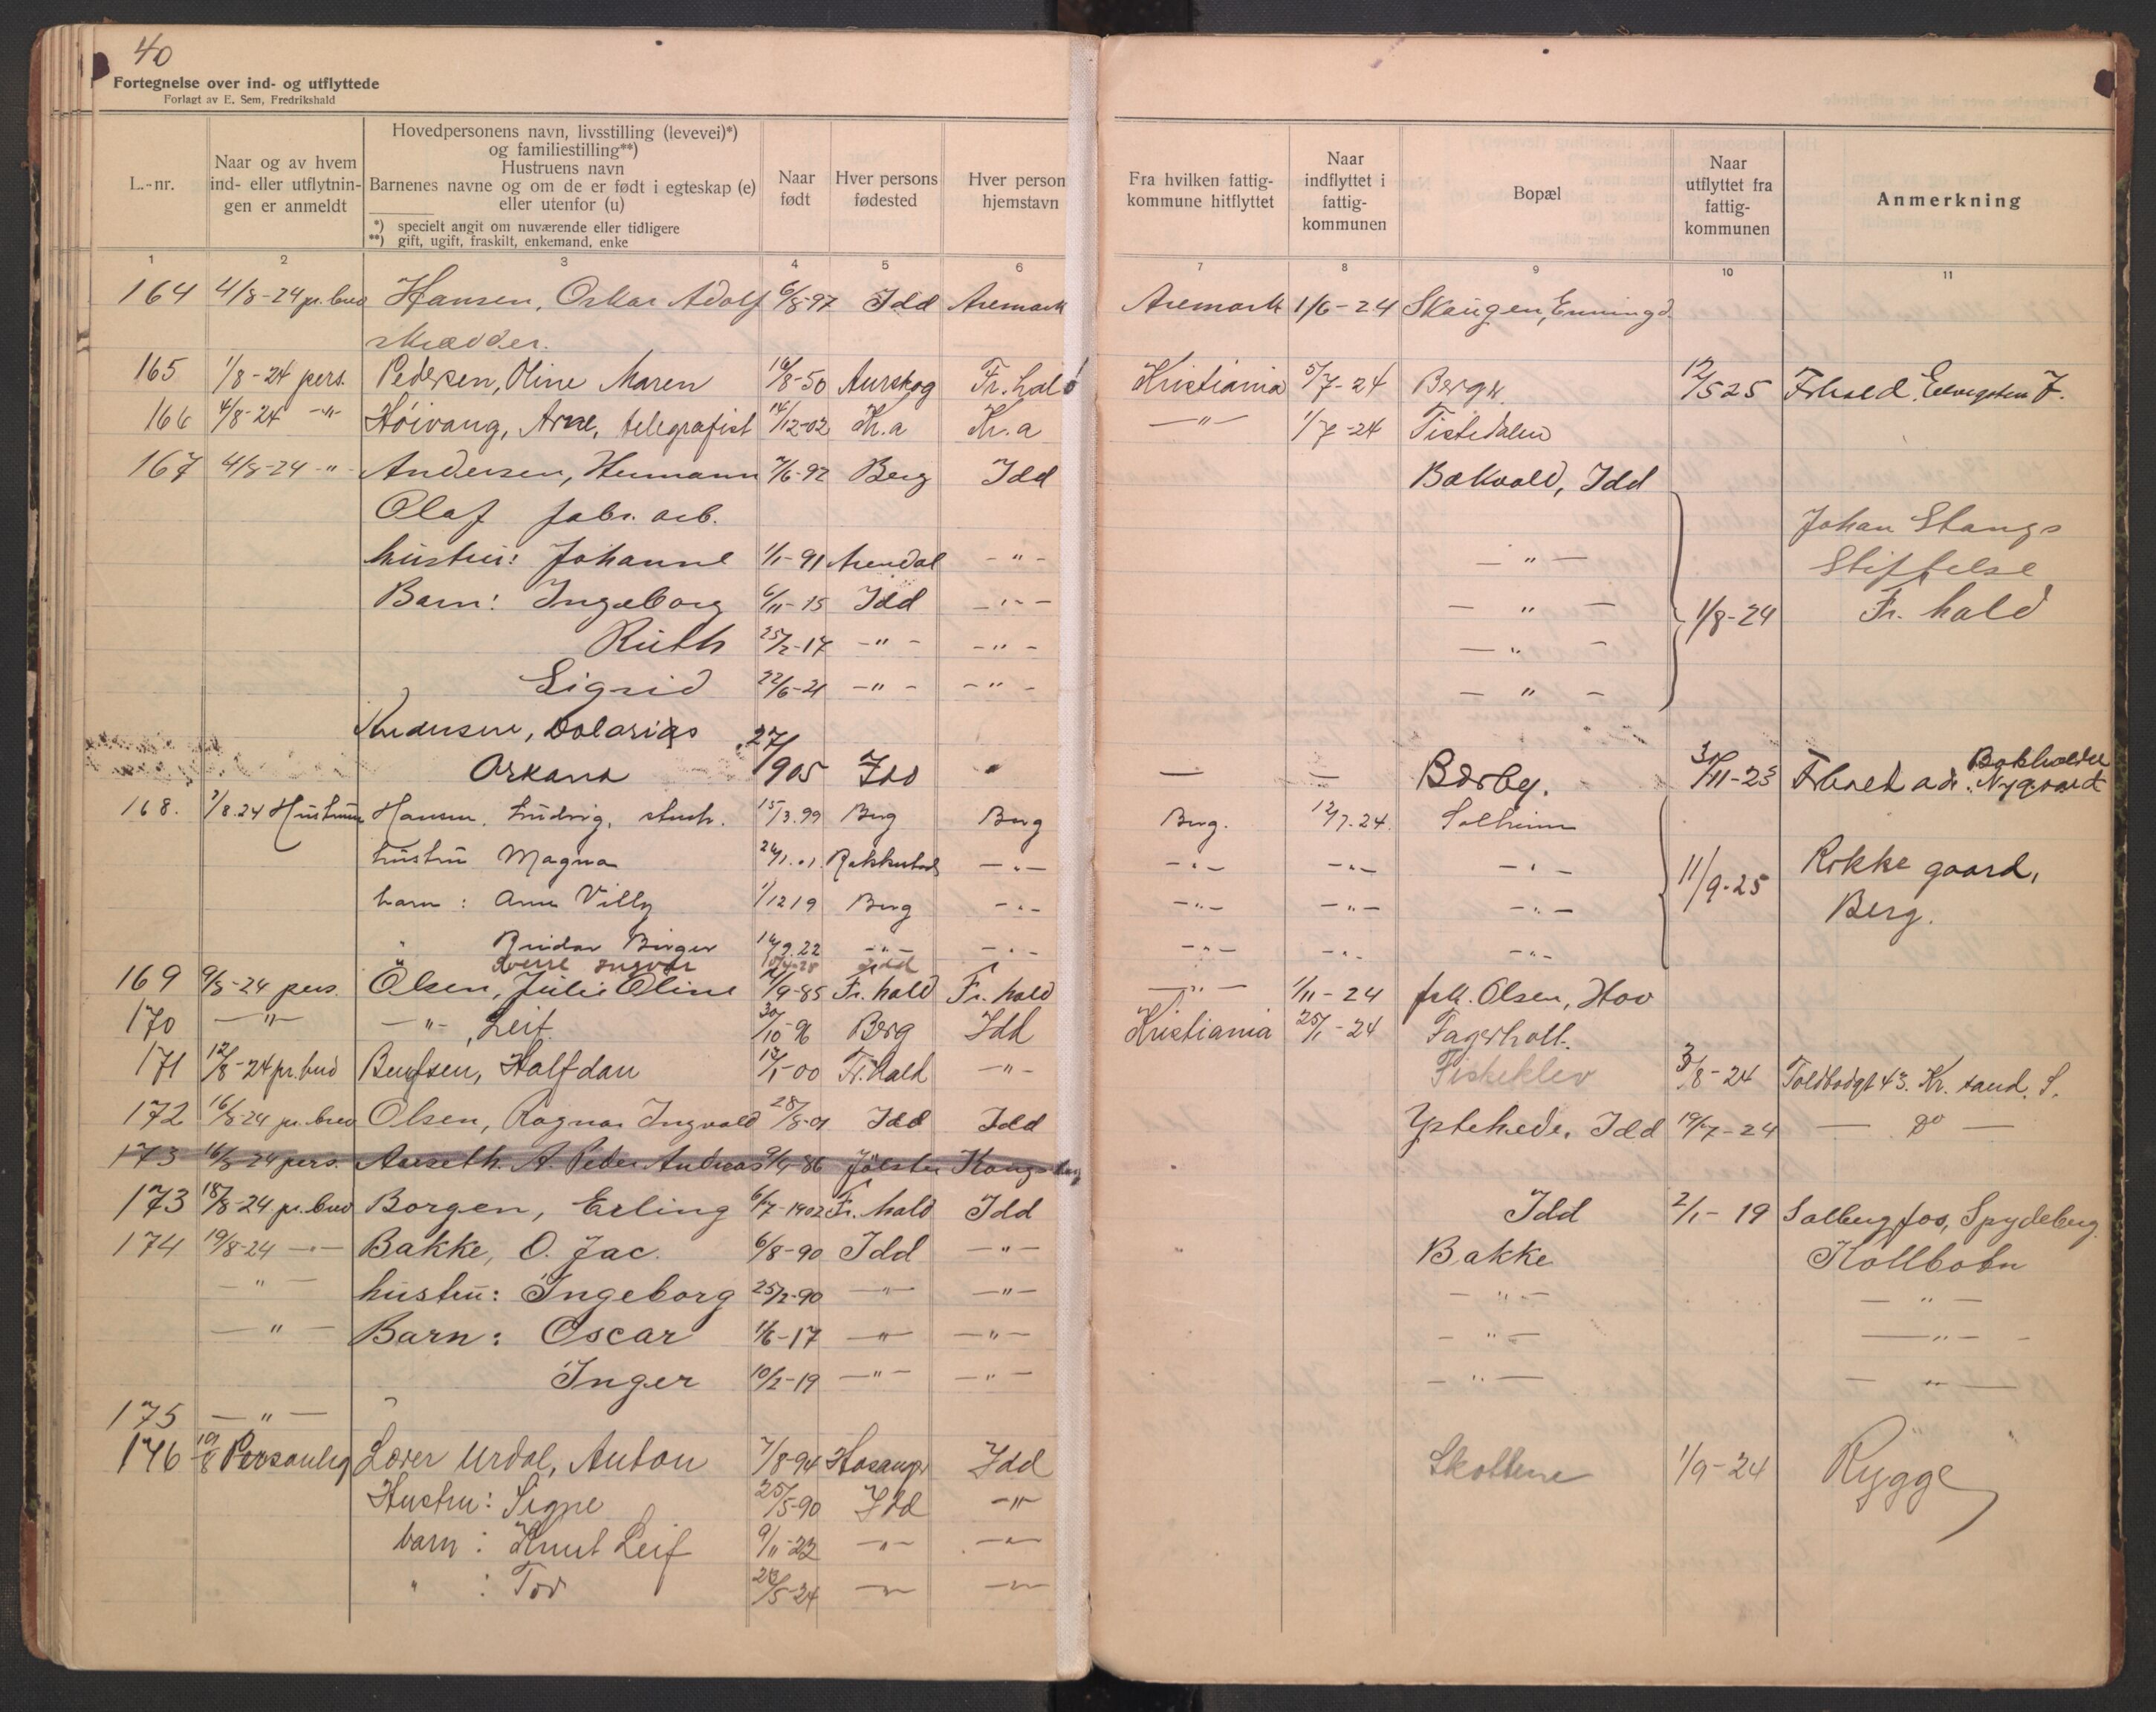 40
Fortegnelse over ind- og utflyttede
Forlagt av E. Sem, Fredrikshald
L.-nr.
Naar og av hvem ind- eller utflytnin-gen er anmeldt
Hovedpersonens navn, livsstilling (levevei)*)
og familiestilling**)
Hustruens navn
Barnenes navne og om de er født i egteskap (e)
eller utenfor (u)
*) specielt angit om nuværende eller tidligere
**) gift, ugift, fraskilt, enkemand, enke
Naar født
Hver persons fødested
Hver person hjemstavn
Fra hvilken fattig-kommune hitflyttet
Naar indflyttet i fattig-kommunen
Bopæl
Naar utflyttet fra fattig-kommunen
Anmerkning
1 2 3 4 5 6 7 8 9 10 11
164 4/8-24 pr. bud Hansen, Oskar Adolf 6/8-97 Idd Aremark Aremark 1/6-24 Skaugen, Enningd.
skrædder.
165 1/8-24 pers. Pedersen, Oline Maren 16/8-50 Aurskog Fr. hald Kristiania 5/7-24 Berg 12/5 25 Frhald
166 4/8-24 -"- Høivang, Arne, telegrafist 14/12-02 Kr.a Kr.a -"- 1/7-24 Tistedalen
167 4/8-24 -"- Andersen, Hermann 7/6-92 Berg Idd Bakvold, Idd
Olaf fabr. arb. Johan Stangs
hustru: Johanne 1/1-91 Arendal -"- -"- Stiftelse
Barn: Ingeborg 6/11-15 Idd -"- -"- 1/8-24 Fr. hald
Ruth 25/2-17 -"- -"- -"-
Sigrid 22/6-21 -"- -"- -"-
Andersen,
27/ 905 Idd — — Bærby. Frhald adr. Nygaard
Bokholder
168. 7/8.24 Hustruen Hansen, Ludvig, 15/3.99 Berg Berg Berg. 12/7.24. Solheim
hustru Magna Rakkestad -"- -"- -"- -"- 11/9-25 Rokke gaard,
barn: Arne Villy 1/12 19 Berg -"- -"- -"- -"- Berg.
" Reidar Birger 9.22 -"- -"- -"- -"- -"-
" Sverre Ingvar Idd
169 9/8-24 pers. Olsen, Julie Oline /9-85 Fr. hald Fr. hald -"- 1/11-24 frk. Olsen, Hov
170 -"- -"-, Leif 30/10-96 Berg Idd Kristiania 25/1-24 Fagerholt.
171 12/8-24 pr. bud Berntsen, Halfdan 12/1-00 Fr. hald -"- Fiskeklev 3/8-24 Toldbodgt 43. Kr. sand. S.
172 16/8-24 pr. brev Olsen, Ragnar Ingvald 28/8-01 Idd Idd Ystehede, Idd 19/7-24 — do —
173 16/8-24 pers. Aarseth. A. Peder Andreas 9/4-86 Jølster Kongsberg
173 18/8-24 pr. bud Borgen, Erling 6/7-1902 Fr. hald Idd Idd 2/1-19 Solbergfos, Spydeberg.
174 19/8-24 -"- Bakke, O. Jac. 6/8-90 Idd -"- Bakke Kollbotn
-"- hustru: Ingeborg 25/2-90 -"- -"- -"- -"-
-"- Barn: Oscar 1/6-17 -"- -"- -"- -"-
Inger 10/2-19 -"- -"- -"- -"-
175 -"-
176 19/8 Personlig Urdal, Anton 7/8-94 Idd Skottene 1/9-24 Rygge
Hustru: Signe 25/5-90 Idd -"-
barn: Knut Leif 9/11-22 -"- -"-
" : Tor 23/5-24 -"- -"-